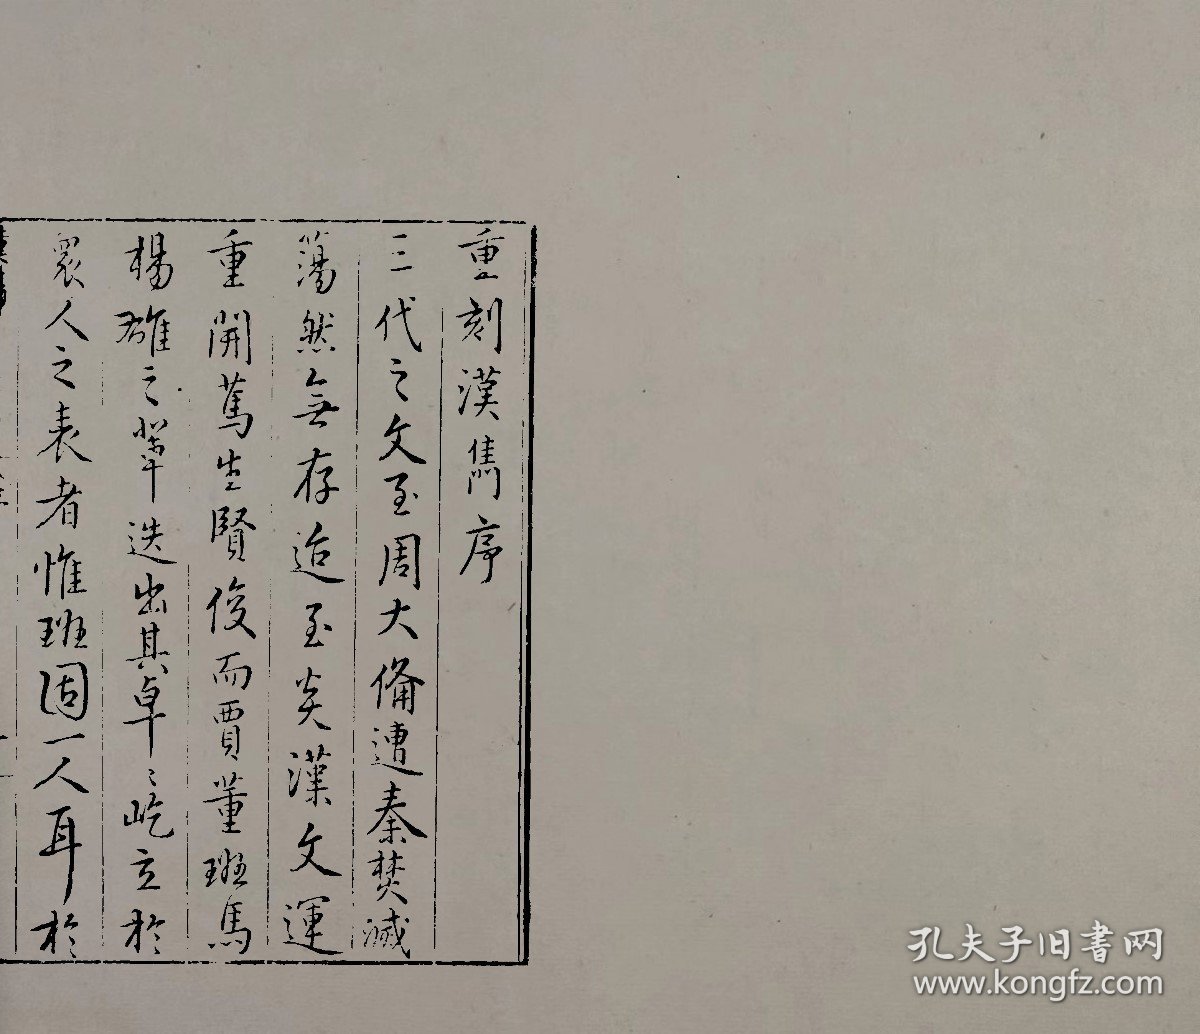 重刻漢雋序
三代之文至周大備遭秦焚滅
蕩然無存迨至炎漢文運
重開篤生賢俊而賈董班馬
楊雄之輩迭出其卓〻屹立於
衆人之表者惟班固一人耳於
孔夫子旧书网
www.kongfz.com